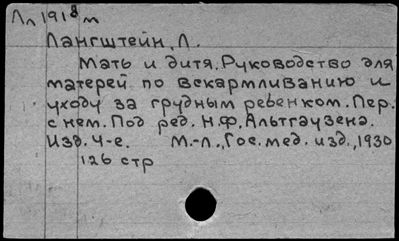 Лл 1918 м
Лангштейн, Л.
Мать и дитя. Руководство для
матерей по вскармливанию и
уходу за грудным ребенком. Пер.
с нем. Под ред. Н.Ф. Альтгаузена.
Изд. 4-е. М.-Л., Гос. мед. изд., 1930
126 стр